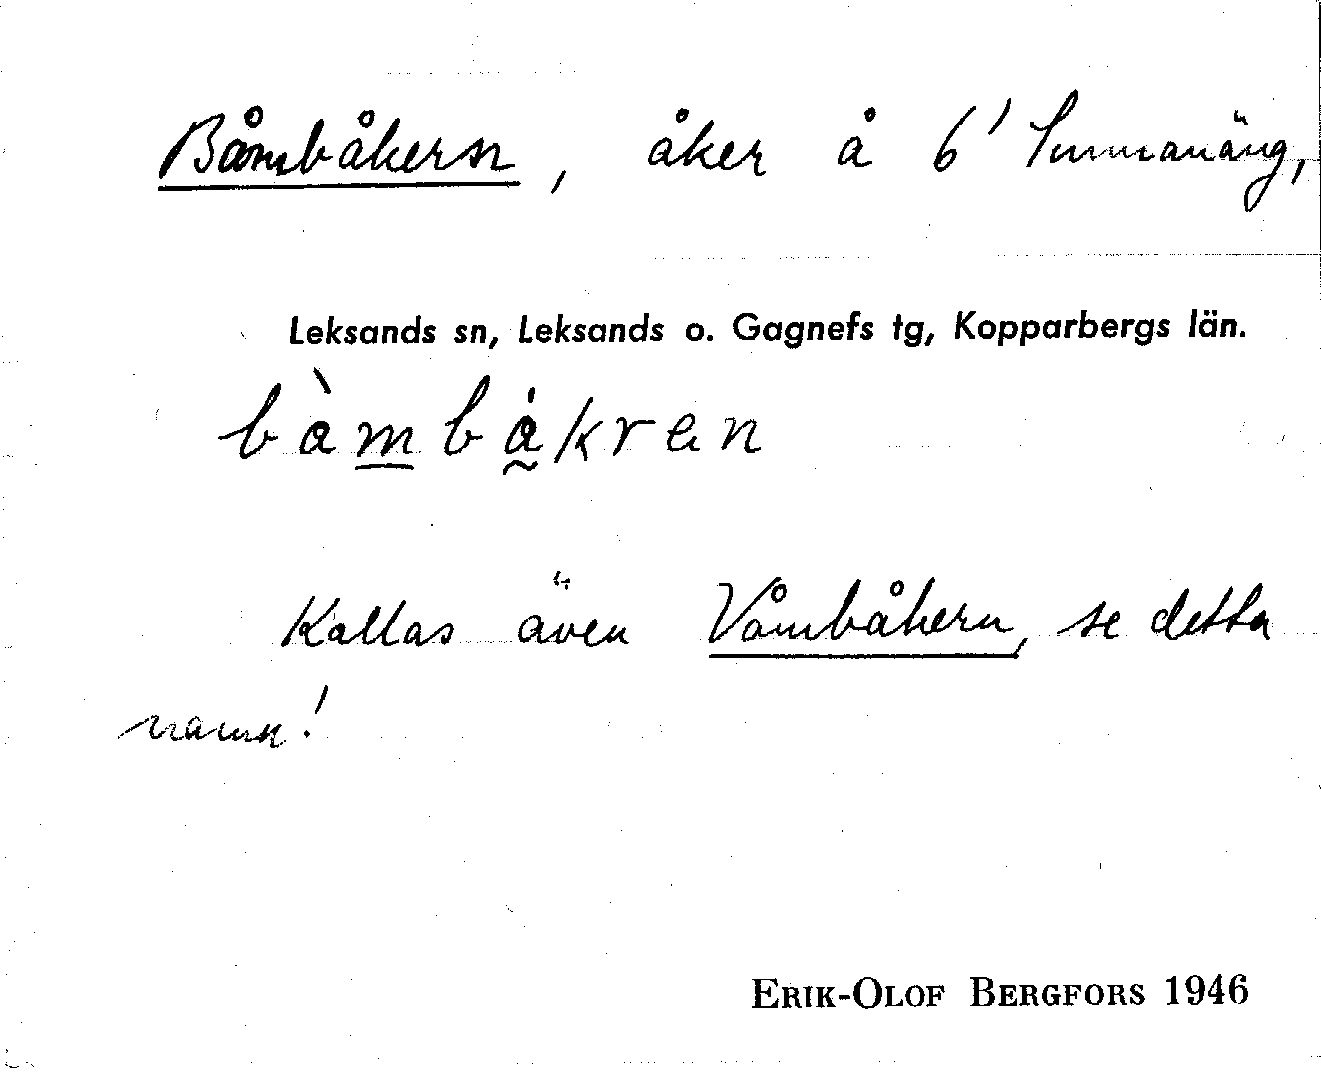 Båmbåkern, åker å 6' Sunnanäng,
Leksands sn, Leksands o. Gagnefs tg, Kopparbergs län.
bàmbåkren
Kallas även Våmbåkern, se detta
namn!
ERIK-OLOF BERGFORS 1946